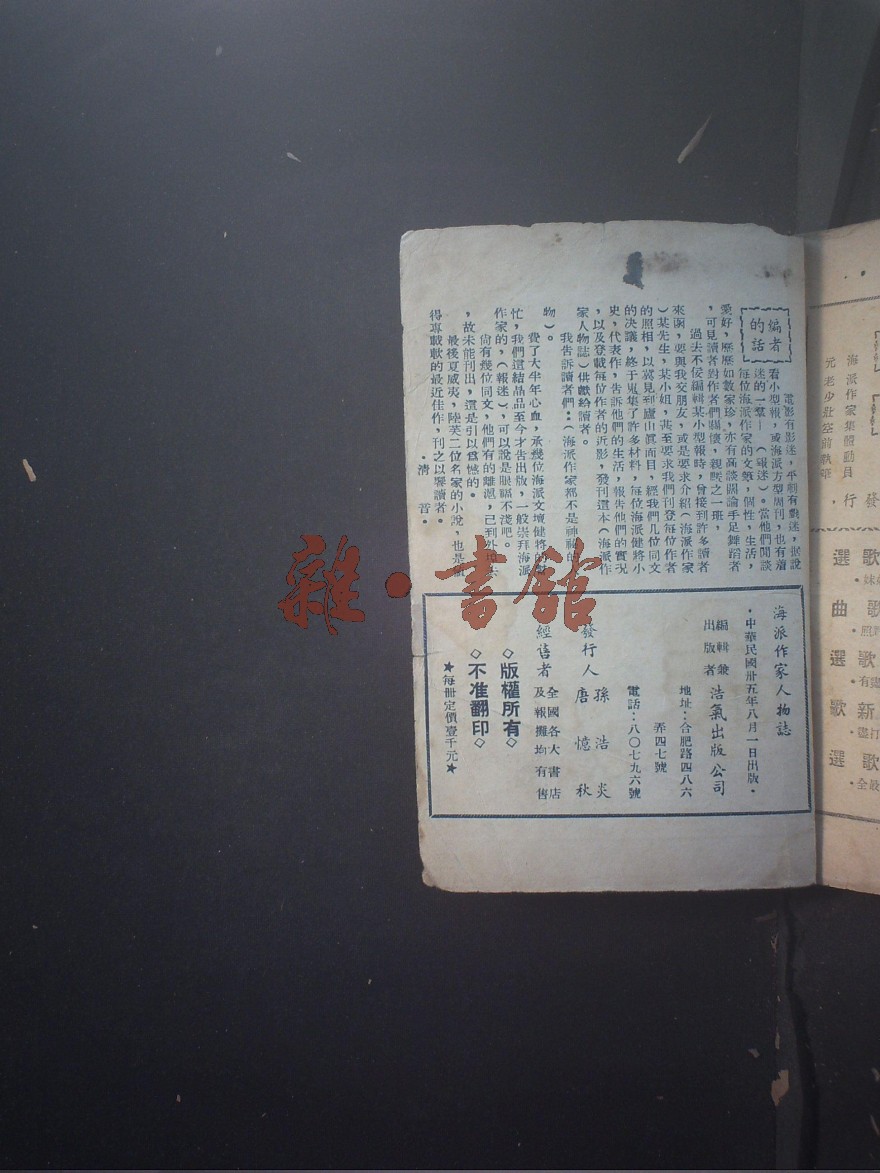 編者
的話
電影有影迷，平劇有戲迷，據說
看小型報，或海派方型周刊，也有着
迷的一羣—（報迷）。當他們閒談
每位海派作家的文筆，個性，生活，
愛好，歷歷如數家珍，亦有高談闊論手足舞蹈者
，可見讀者對作者們關懷，親熱之一班，
過去不佞編輯某小型報時，曾接到許多讀者
來函，要與我交朋友，或是要求介紹（海派作家
）某先生，某小姐，甚至要求我們刊登每位作者
的照相，以冀見到廬山眞面目，經我們几位同文
的决議，終于蒐集了許多材料，每位海派健將小
史，代表作，告訴他們的生活，報告他們的實况
，以及登載每位作者的近影，發刊這本（海派作
家人物誌）供獻給讀者。
我告訴讀者們：（海派作家都不是神祕的
物）。
費了大半年心血，承幾位海派文壇健將的
忙，我們這結晶品至今才告出版，一般崇拜海派
作家的，（報迷），可以說是眼福不淺吧。
尙有幾位同文，他們有的離滬，已到外埠去
，故未能刊出，這是引以爲憾的。
最後夏威夷，陸芙二位名家的小說，也是
得專載歡的最近佳作，刊之以饗讀者。
·淸晉·
海派作家人物誌
·中華民國卅五年八月一日出版·
編輯兼
出版者 浩氣出版公司
地址：合肥路四八六
弄四七號
電話：八〇七九六號
發行人 孫浩炎
唐憶秋
經售者 全國各大書店
及報攤均有售
◇版權所有◇
◇不准翻印◇
★每冊定價壹千元★
海派作家集體動員
元老少壯空前執筆
發行·
歌選
歌曲
歌選
新歌
歌選
雜·書館